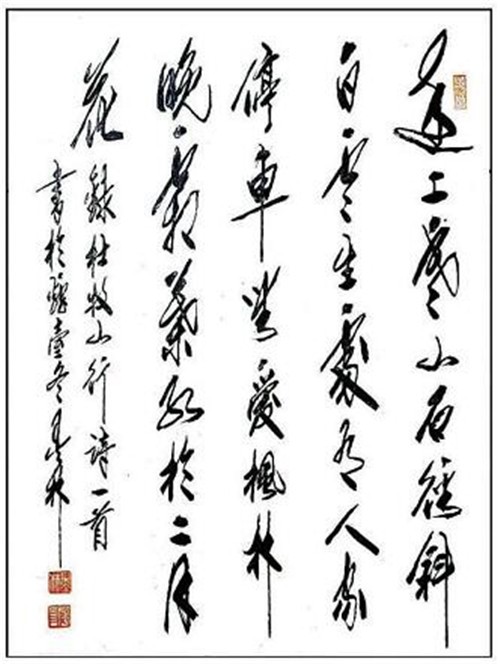 遠上寒山石徑斜
白雲生處有人家
停車坐愛楓林
晚霜葉紅於二月
花
錄杜牧山行詩一首
書於 冬